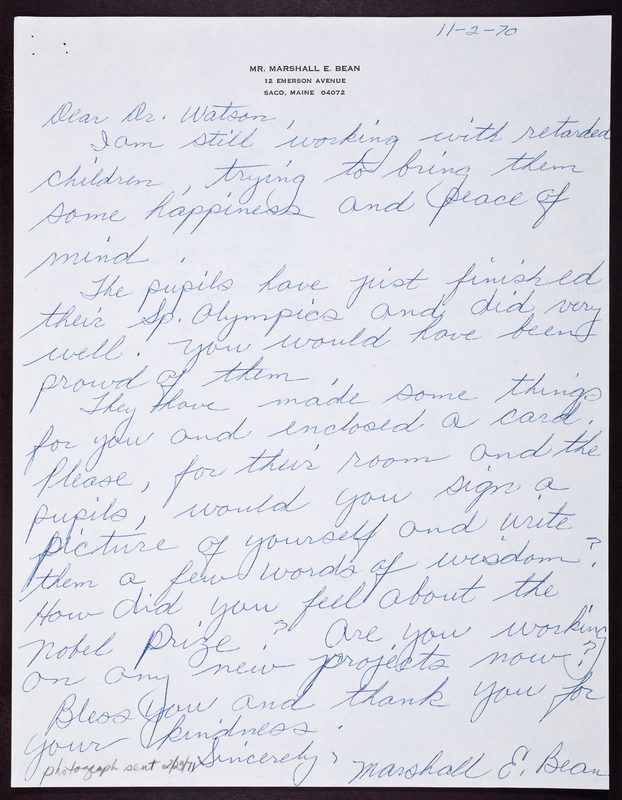 11-2-70
MR. MARSHALL E. BEAN
12 EMERSON AVENUE
SACO, MAINE 04072
Dear Dr. Watson,
I am still working with retarded
children, trying to bring them
some happiness and peace of
mind.
The pupils have just finished
their Sp. Olympics and did very
well. You would have been
proud of them.
They have made some things
for you and enclosed a card.
Please, for their room and the
pupils, would you sign a
picture of yourself and write
them a few words of wisdom?
How did you feel about the
Nobel Prize? Are you working
on any new projects now?
Bless you and thank you for
your kindness.
Sincerely,
Marshall E. Bean
photograph sent